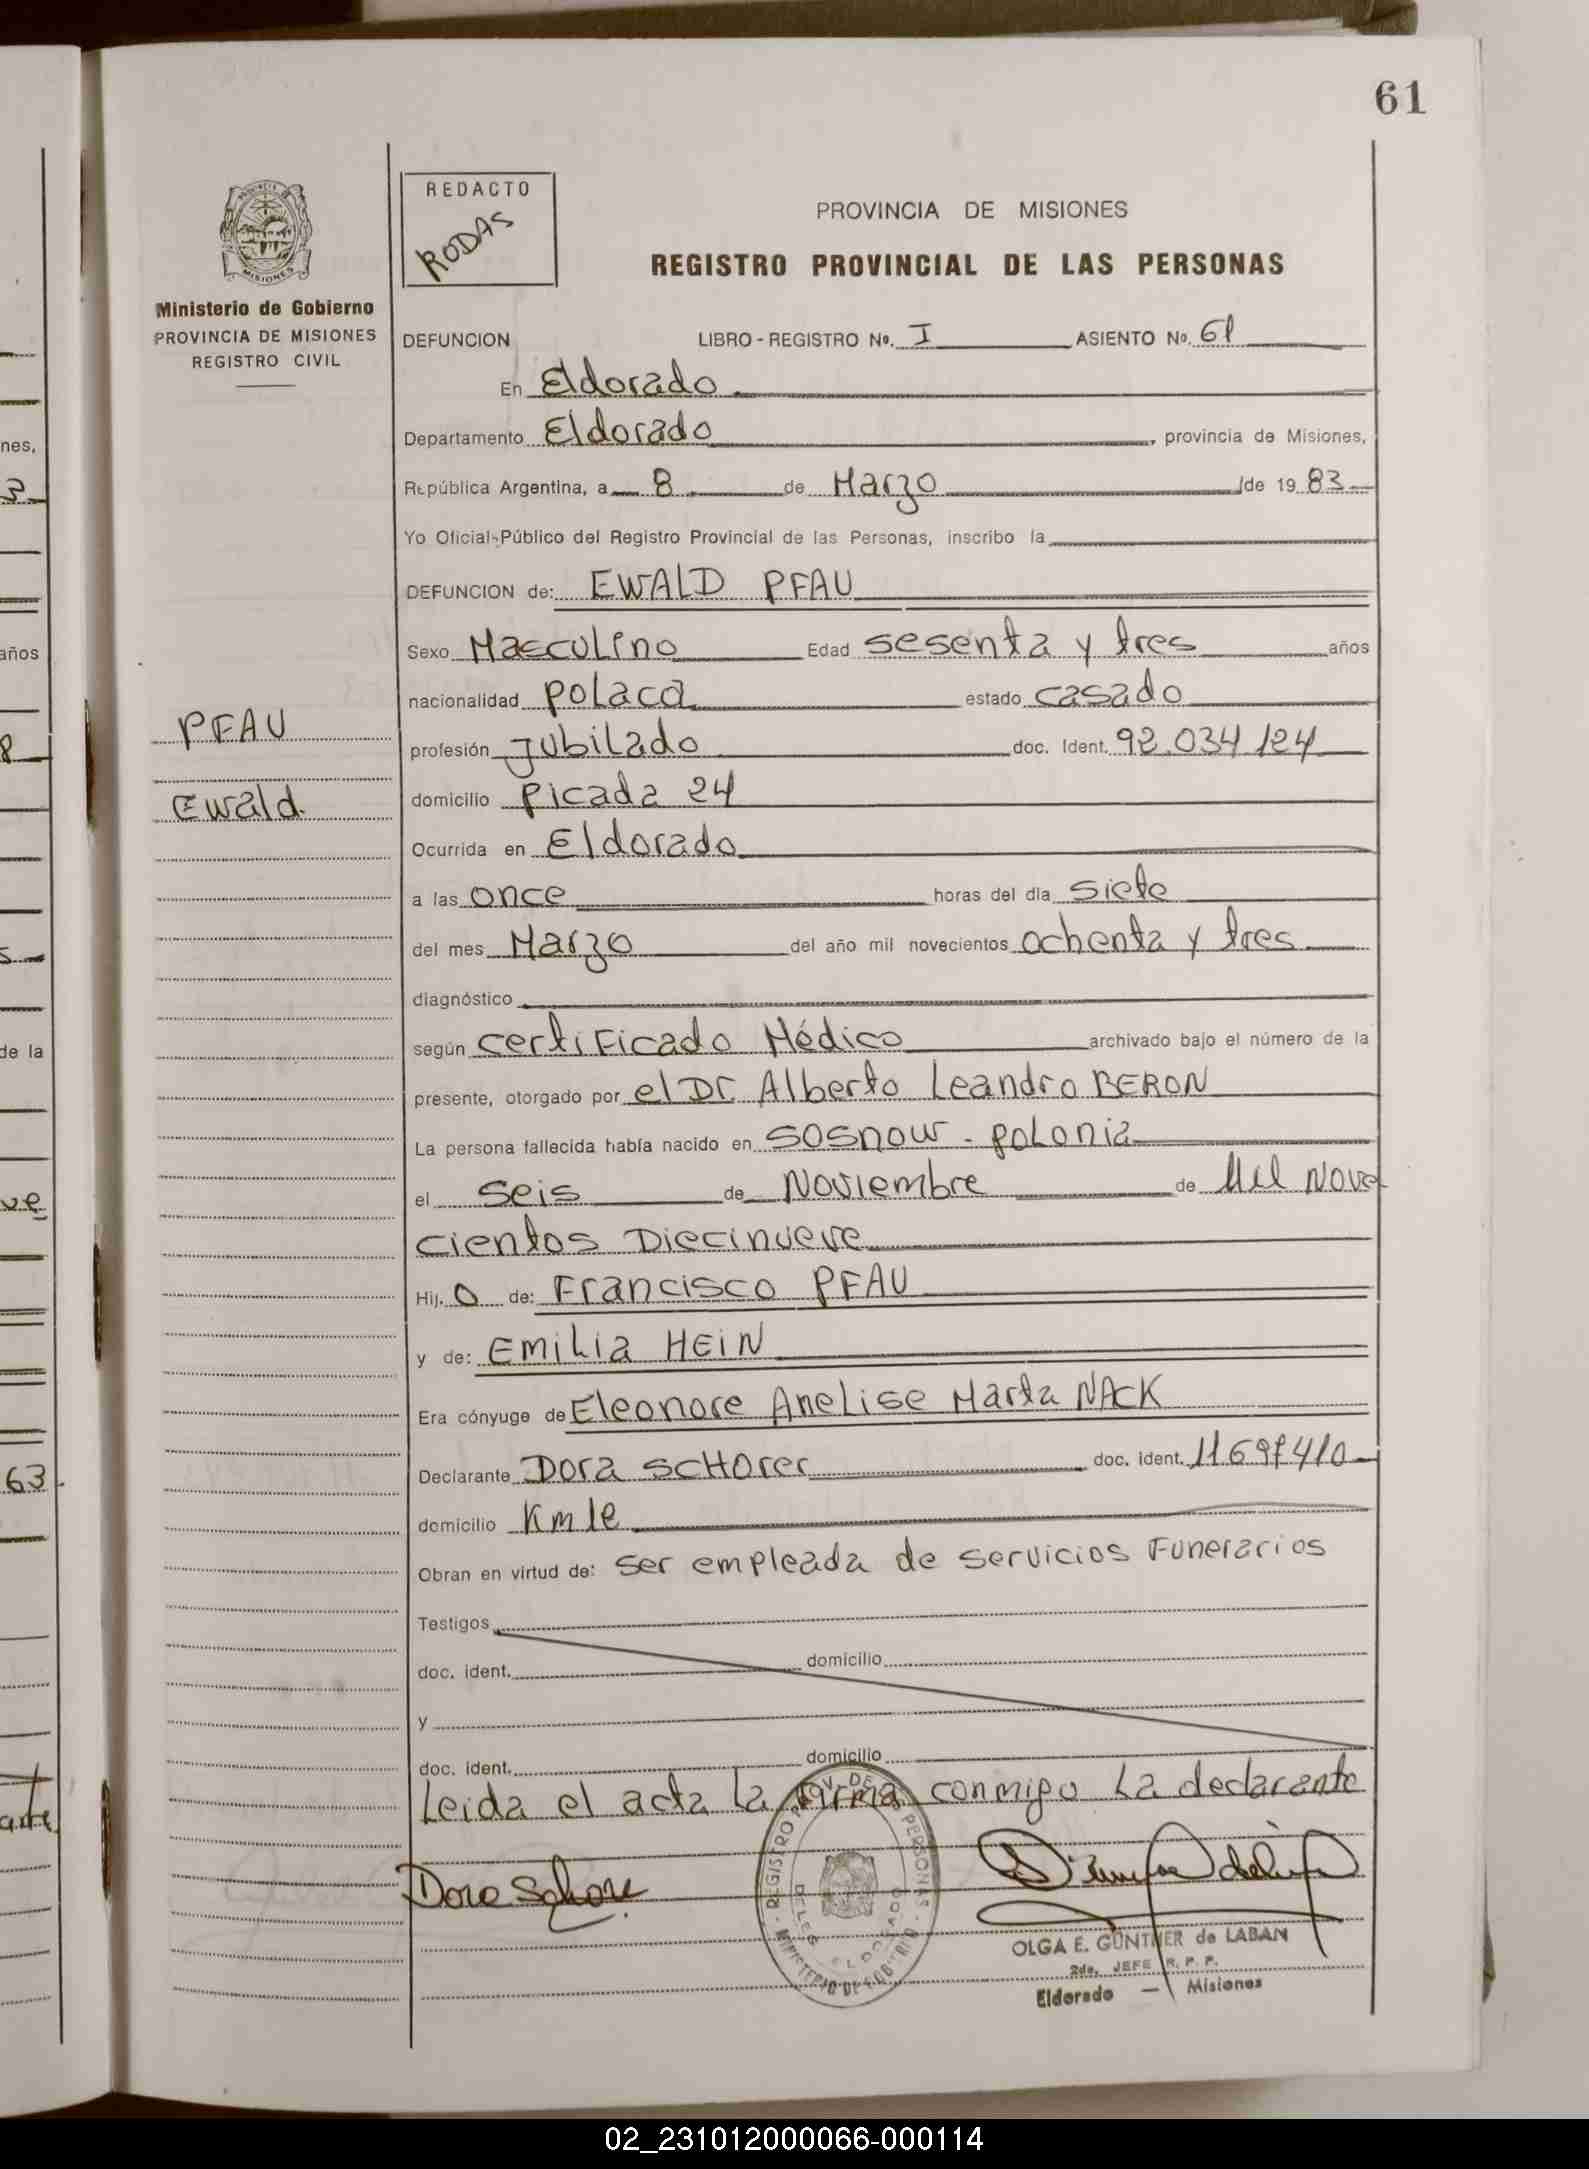 61
PROVINCIA DE MISIONES
REGISTRO PROVINCIAL DE LAS PERSONAS
REDACTO
RODAS
MISIONES
Ministerio de Gobierno
PROVINCIA DE MISIONES
REGISTRO CIVIL
PFAU
Ewald.
DEFUNCION LIBRO - REGISTRO No. I ASIENTO No. 61
En Eldorado
Departamento Eldorado, provincia de Misiones,
República Argentina, a 8 de Marzo de 1983
Yo Oficial Público del Registro Provincial de las Personas, inscribo la
DEFUNCION de: EWALD PFAU
Sexo Masculino Edad sesenta y tres años
nacionalidad polaca estado casado
profesión jubilado doc. Ident. 92.034124
domicilio picada 24
Ocurrida en Eldorado
a las once horas del día siete
del mes Marzo del año mil novecientos ochenta y tres
diagnóstico
según certificado Médico archivado bajo el número de la
presente, otorgado por el Dr Alberto Leandro BERON
La persona fallecida había nacido en SOSNOW - POLONIA
el seis de Noviembre de Mil Nove
cientos Diecinueve
Hij o de: Francisco PFAU
y de: Emilia HEIN
Era cónyuge de Eleonore Anelise Marta NACK
Declarante Dora SCHOrer doc. ident.
domicilio Km
Obran en virtud de: ser empleada de servicios Funerarios
Testigos
doc. ident. domicilio
y
doc. ident. domicilio
Leida el acta la firma conmigo La declarante
REGISTRO PROV. DE PERSONAS
MINISTERIO DE GOBIERNO
ELDORADO
OLGA E. GUNTHER de LABAN
2do. JEFE R. P. P.
Eldorado — Misiones
nes,
3
años
8
de la
ve
63
02_231012000066-000114